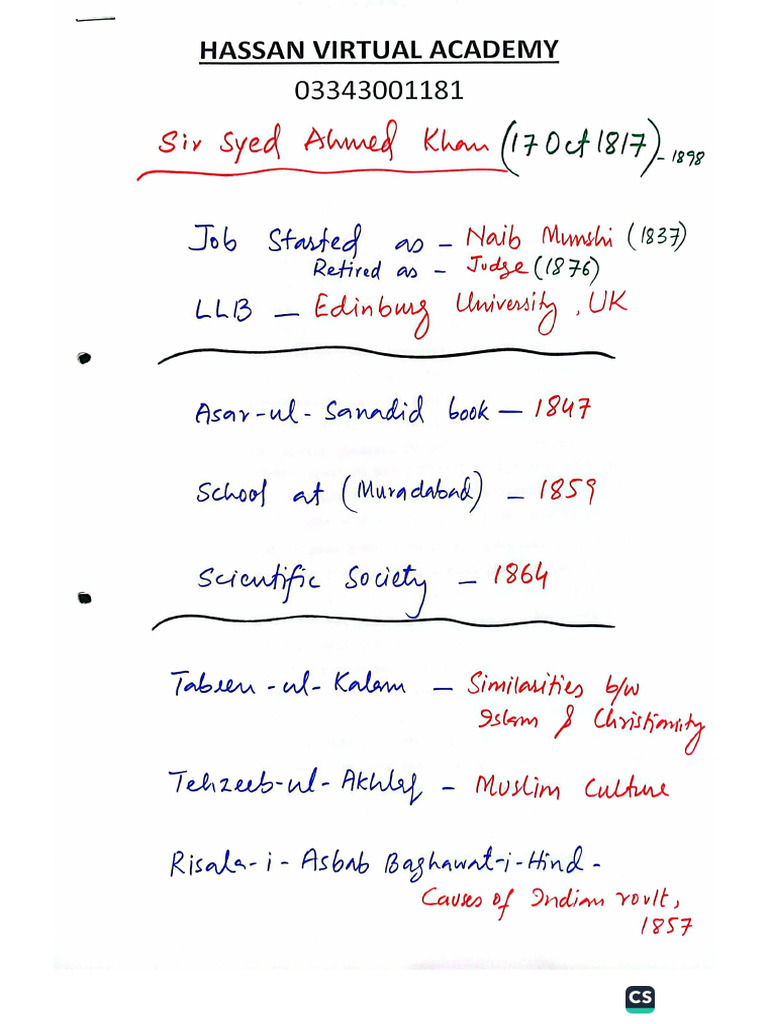 HASSAN VIRTUAL ACADEMY
03343001181
Sir Syed Ahmed Khan (17 Oct 1817) - 1898
Job Started as - Naib Munshi (1837)
Retired as - Judge (1876)
LLB - Edinburg University, UK
Asar-ul-Sanadid book - 1847
School at (Muradabad) - 1859
Scientific Society - 1864
Tabeen-ul-Kalam - Similarities b/w
Islam & Christianity
Tehzeeb-ul-Akhlaq - Muslim Culture
Risala-i-Asbab Baghawat-i-Hind -
Causes of Indian rovlt,
1857
CS